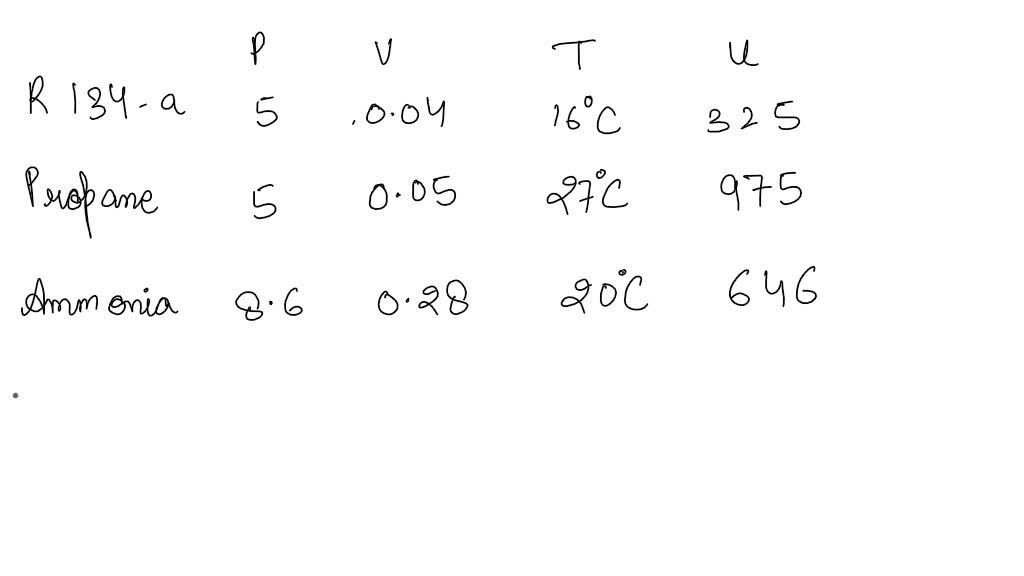 P V T u
R 134-a 5 .0.04 16°C 325
Propane 5 0.05 27°C 975
Ammonia 8.6 0.28 20°C 646